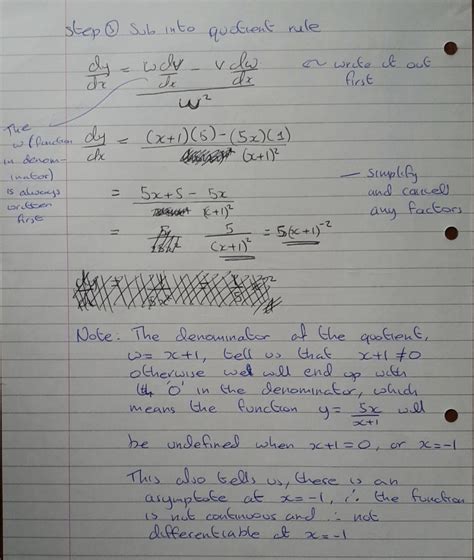 Step ③ Sub into quotient rule
dy/dx = (w dv/dx - v dw/dx) / w²
~ write it out first
The w (function in denominator) is always written first
dy/dx = ((x+1)(5) - (5x)(1)) / (x+1)²
= (5x+5 - 5x) / (x+1)²
— simplify and cancel any factors
= 5/(x+1)² = 5(x+1)⁻²
Note: The denominator of the quotient,
w = x+1, tell us that x+1 ≠ 0
otherwise we will end up with
'0' in the denominator, which
means the function y = 5x/(x+1) will
be undefined when x+1=0, or x=-1
This also tells us, there is an
asymptote at x=-1, ∴ the function
is not continuous and ∴ not
differentiable at x=-1